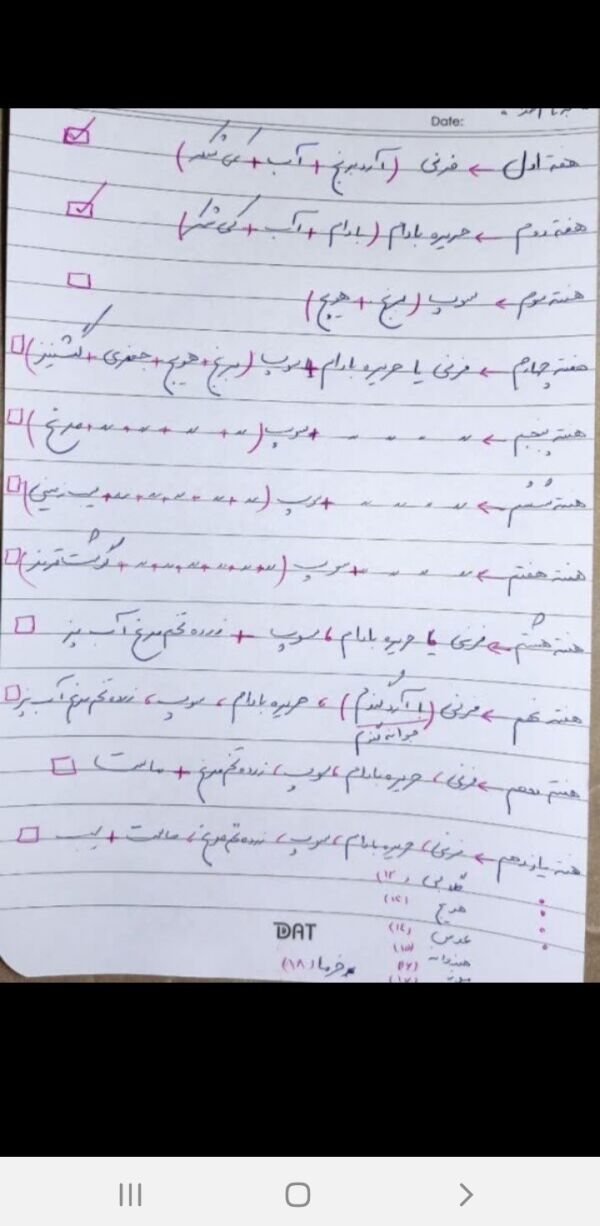 Date:
هفته اول ← فرنی (آرد برنج + آب + کمی شکر)
هفته دوم ← حریره بادام (بادام + آب + کمی شکر)
هفته سوم ← سوپ (برنج + هویج)
هفته چهارم ← فرنی یا حریره بادام + سوپ (برنج + هویج + جعفری + گشنیز)
هفته پنجم ← 〃 〃 〃 〃 + سوپ (〃 + 〃 + 〃 + 〃 + مرغ)
هفته ششم ← 〃 〃 〃 〃 + سوپ (〃 + 〃 + 〃 + 〃 + 〃 + سیب زمینی)
هفته هفتم ← 〃 〃 〃 〃 + سوپ (〃 + 〃 + 〃 + 〃 + 〃 + 〃 + گوشت قرمز)
هفته هشتم ← فرنی یا حریره بادام، سوپ + زرده تخم مرغ آب پز
هفته نهم ← فرنی (با آرد گندم)، حریره بادام، سوپ، زرده تخم مرغ آب پز
جوانه گندم
هفته دهم ← فرنی، حریره بادام، سوپ، زرده تخم مرغ + ماست
هفته یازدهم ← فرنی، حریره بادام، سوپ، زرده تخم مرغ، ماست + سیب
(۱۲)
هویج (۱۳)
عدس (۱۴)
(۱۵)
هندوانه (۱۶)
موز (۱۷)
خرما (۱۸)
DAT